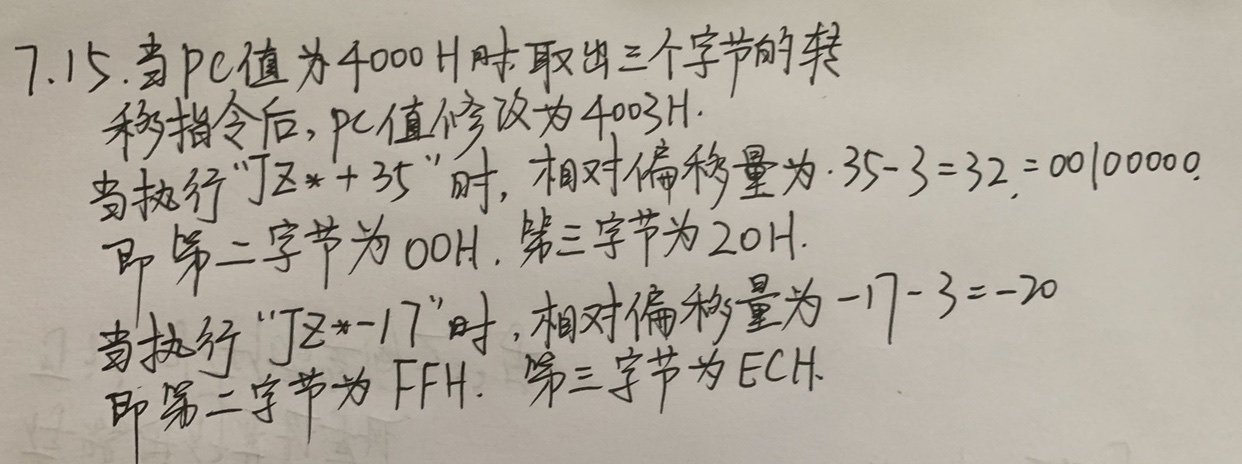 7.15.当PC值为4000H时取出三个字节的转
移指令后,PC值修改为4003H.
当执行"JZ*+35"时,相对偏移量为.35-3=32.=00100000.
即第二字节为00H.第三字节为20H.
当执行"JZ*-17"时,相对偏移量为-17-3=-20
即第二字节为FFH.第三字节为ECH.